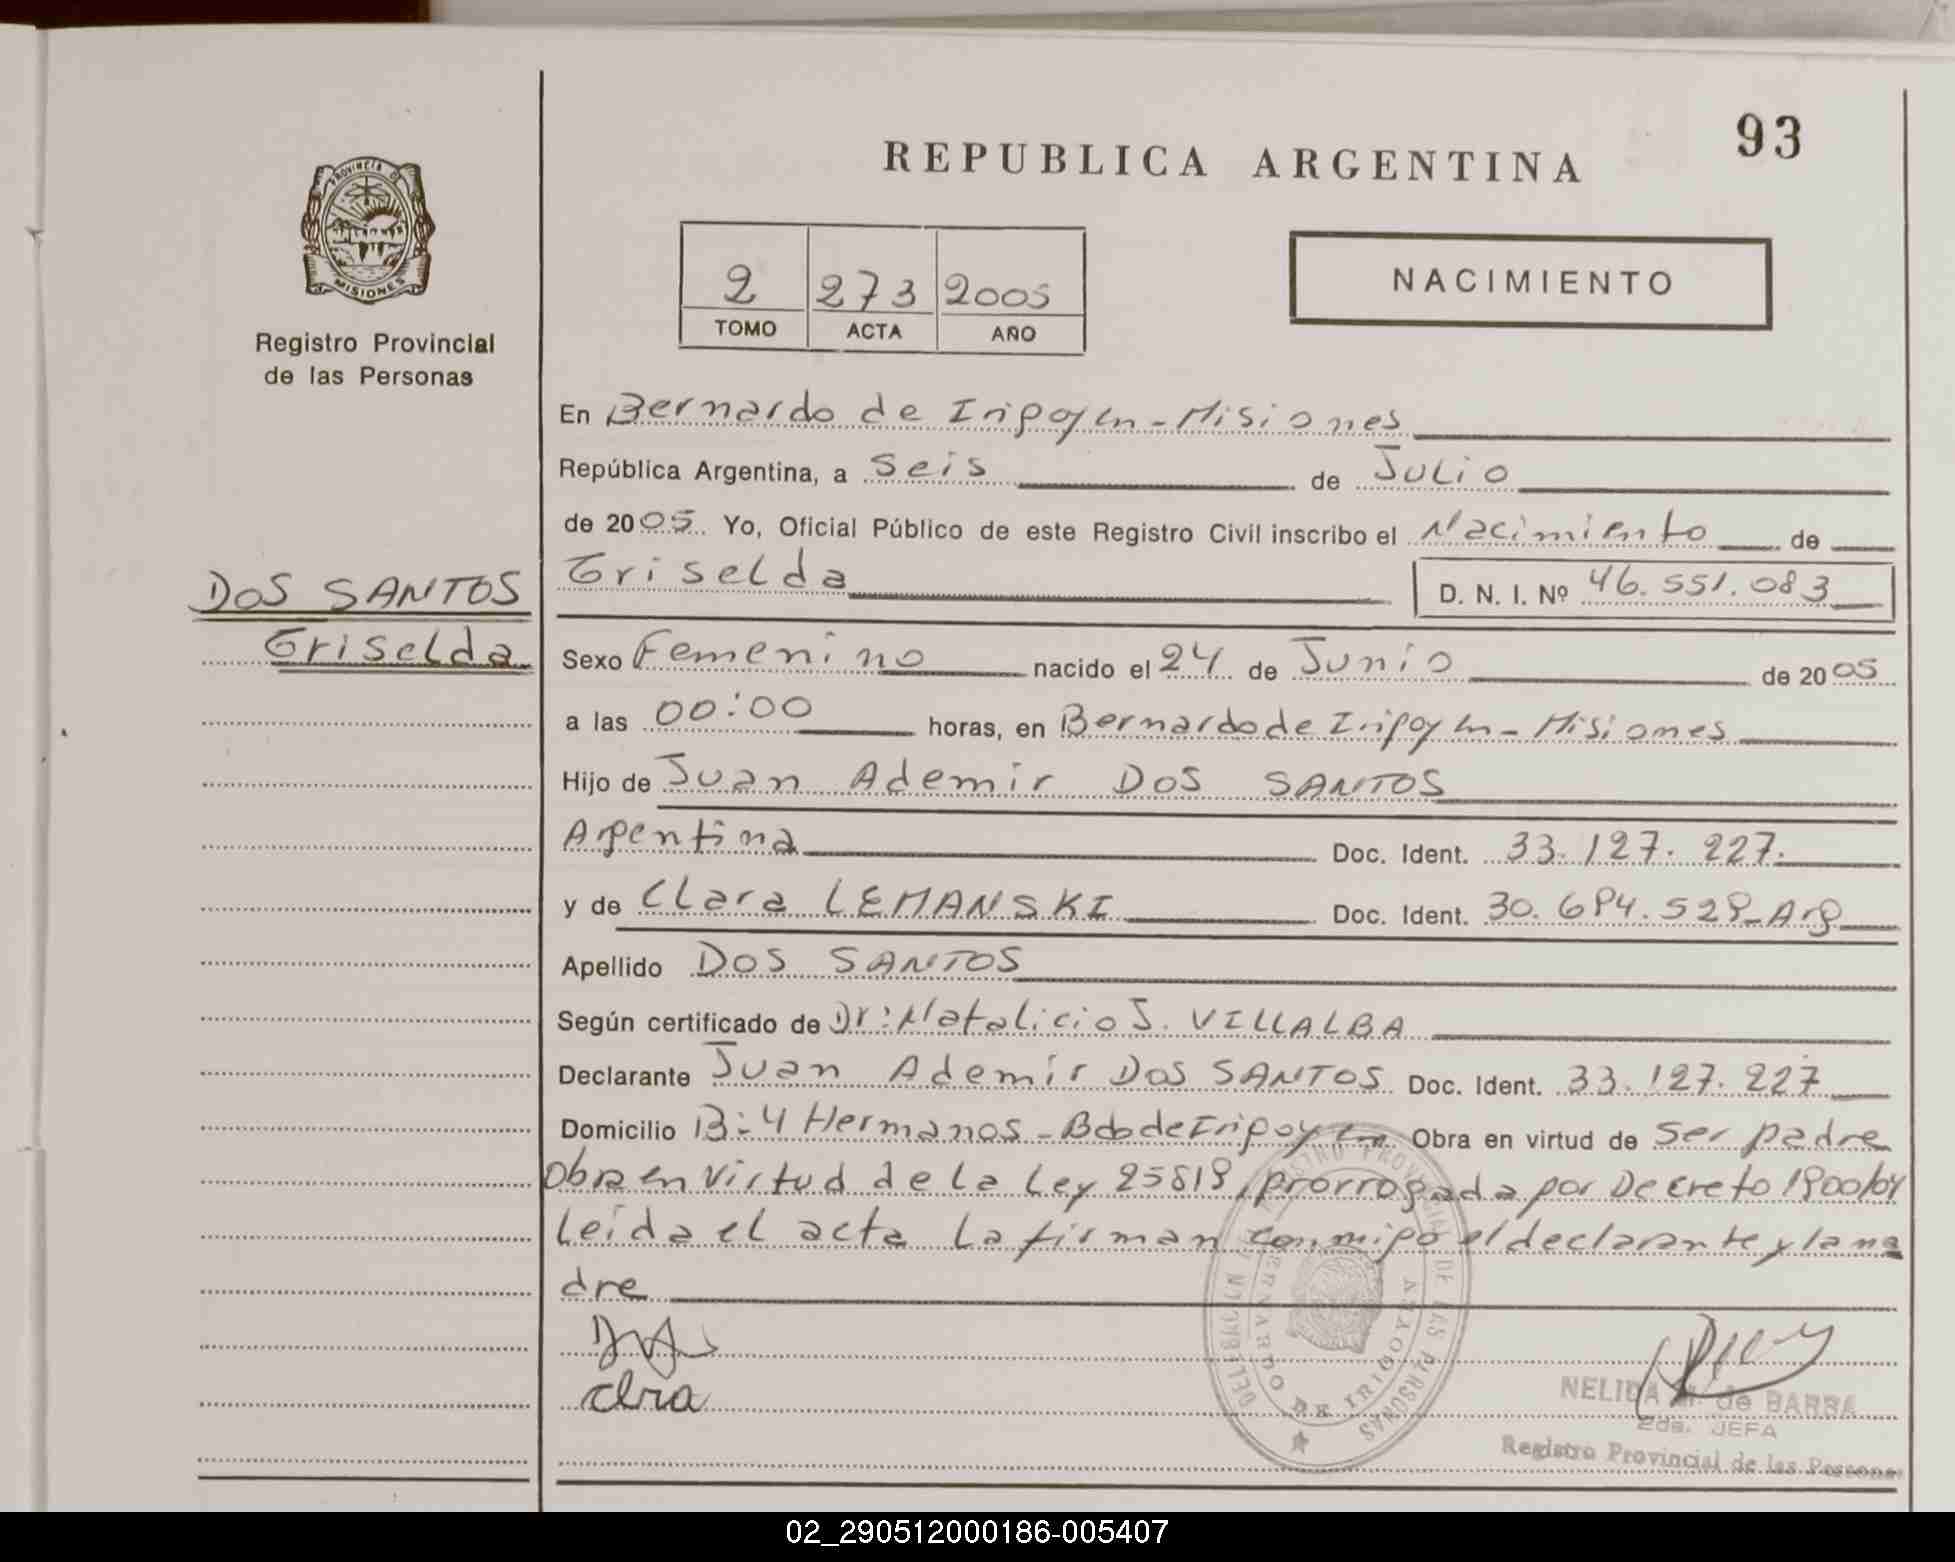 93
REPUBLICA ARGENTINA
PROVINCIA D
MISIONES
Registro Provincial
de las Personas
2 273 2005
TOMO ACTA AÑO
NACIMIENTO
En Bernardo de Irigoyen - Misiones
República Argentina, a Seis de Julio
de 2005. Yo, Oficial Público de este Registro Civil inscribo el Nacimiento de
Griselda D. N. I. Nº 46.551.083
DOS SANTOS
Griselda
Sexo Femenino nacido el 24 de Junio de 2005
a las 00:00 horas, en Bernardo de Irigoyen - Misiones
Hijo de Juan Ademir DOS SANTOS
Argentina Doc. Ident. 33.127.227.
y de Clara LEMANSKI Doc. Ident. 30.684.528-Arg
Apellido DOS SANTOS
Según certificado de Dr: Natalicio J. VILLALBA
Declarante Juan Ademir DOS SANTOS Doc. Ident. 33.127.227
Domicilio B: 4 Hermanos - Bdo de Irigoyen Obra en virtud de ser padre
Obra en virtud de la Ley 25819, prorrogada por Decreto 1900/04
Leida el acta la firman conmigo el declarante y la ma
dre
NELIDA de BARRA
2da. JEFA
Registro Provincial de las Personas
02_290512000186-005407